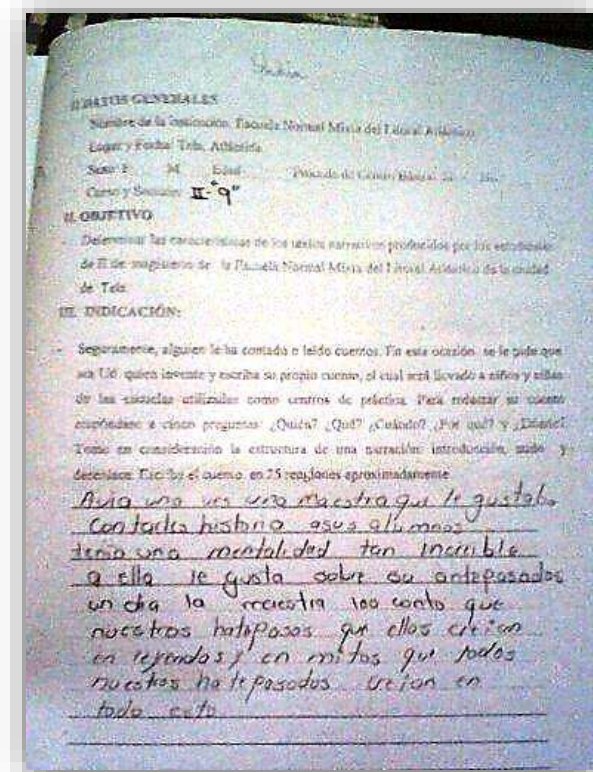 I. DATOS GENERALES
Nombre de la institución: Escuela Normal Mixta del Litoral Atlántico
Lugar y Fecha: Tela, Atlántida
Sexo F M Edad Procede de Centro Básico: Si No
Curso y Sección: II-"9"
II. OBJETIVO
Determinar las características de los textos narrativos producidos por los estudiantes
de II de magisterio de la Escuela Normal Mixta del Litoral Atlántico de la ciudad
de Tela
III. INDICACIÓN:
- Seguramente, alguien le ha contado o leído cuentos. En esta ocasión se le pide que
sea Ud. quien invente y escriba su propio cuento, el cual será llevado a niños y niñas
de las escuelas utilizadas como centros de práctica. Para redactar su cuento
respóndase a cinco preguntas: ¿Quién? ¿Qué? ¿Cuándo? ¿Por qué? y ¿Dónde?
Tome en consideración la estructura de una narración: introducción, nudo y
desenlace. Escriba el cuento en 25 renglones aproximadamente
Avia una ves una maestra que le gustaba
contarles historia asus alumnos
tenia una mentalidad tan increible
a ella le gusta sobre su antepasados
un dia la maestra los conto que
nuestros hatepasos que ellos creian
en leyendas y en mitos que todos
nuestros hatepasados creian en
todo esto